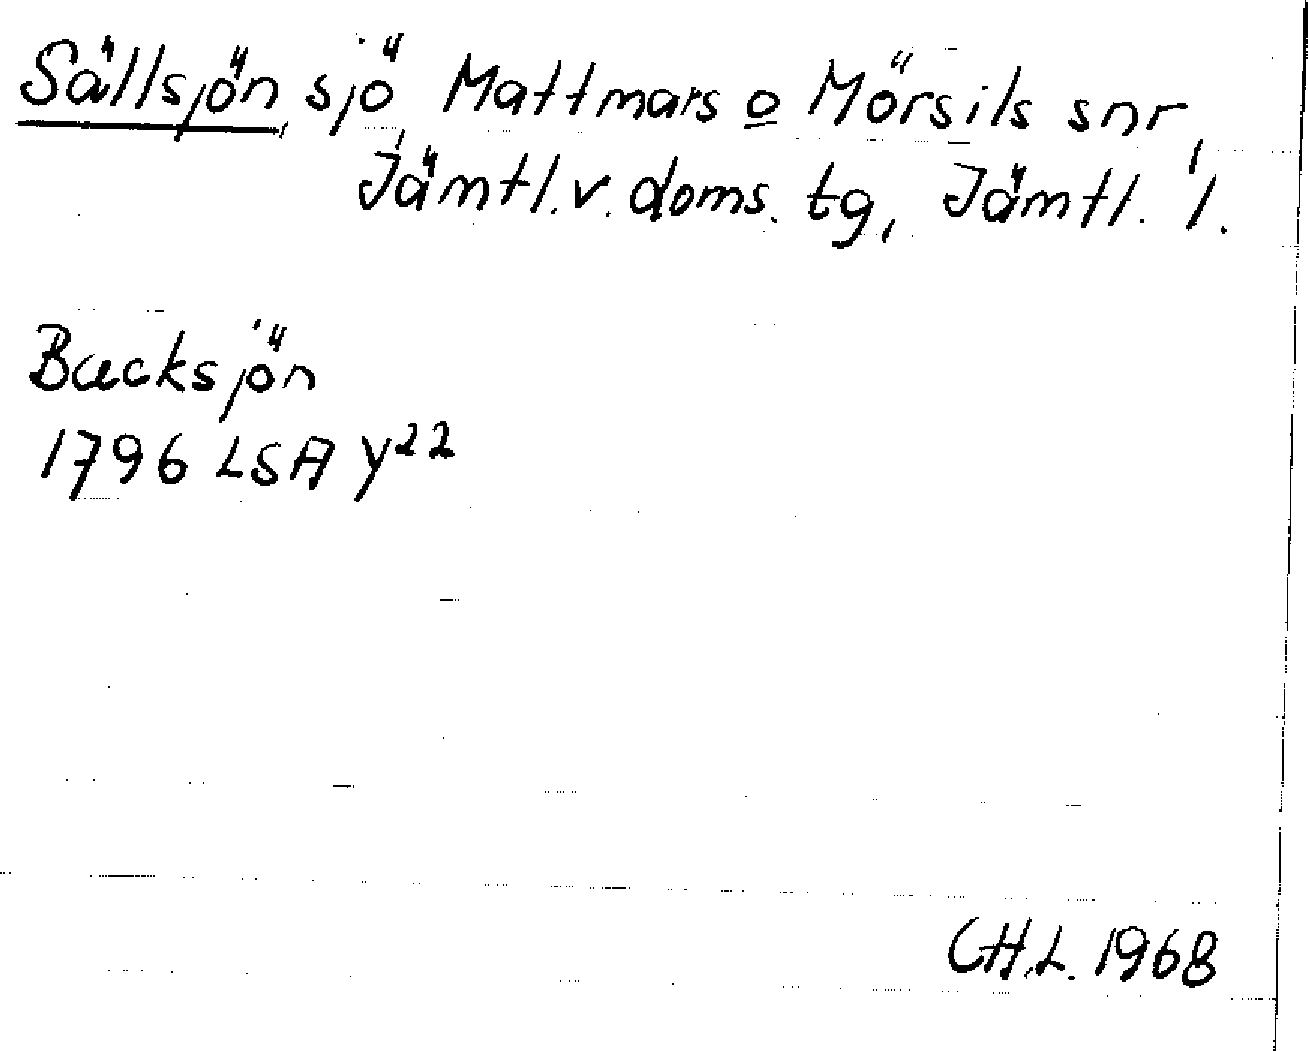 Sällsjön, sjö, Mattmars o Mörsils snr,
Jämtl. v. doms. tg, Jämtl. l.
Bæcksjön
1796 LSA Y²²
C.H.L. 1968